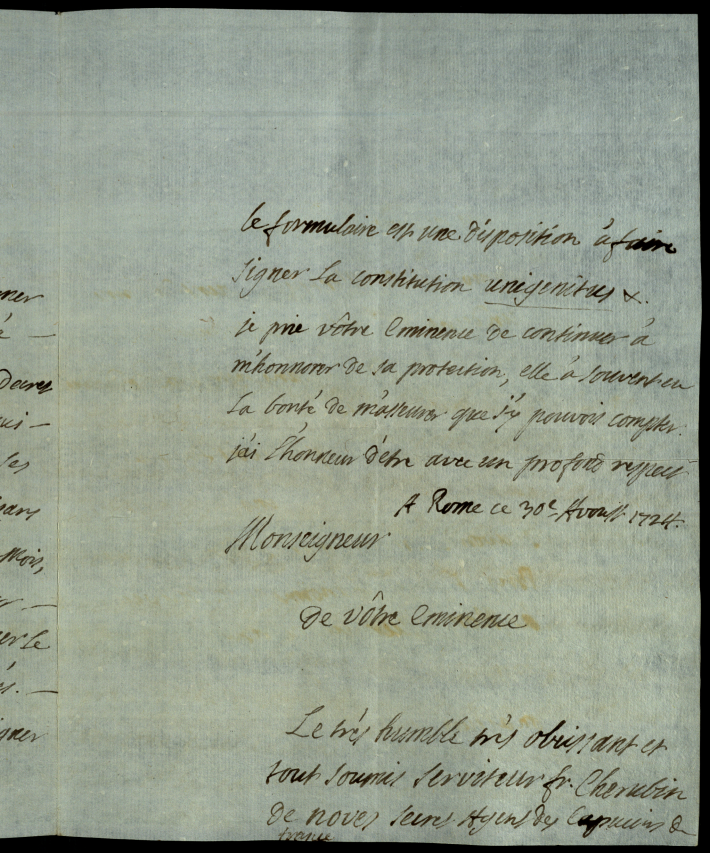 gner
é —
Decret
ui –
les
sans
Mois,
er —
er le
és. —
igner
le formulaire est une disposition à faire
signer la constitution unigenitus &.
je prie vôtre Eminence de continuer à
m'honnorer de sa protection, elle à souvent eu
la bonté de m'asseurer que j'y pouvois compter.
j'ai l'honneur d'être avec un profond respect
A Rome ce 30e. Avoust 1724.
Monseigneur
de vôtre Eminence
Le très humble très obeissant et
tout soumis serviteur fr. Cherubin
de noves Agent des Capucins de
france